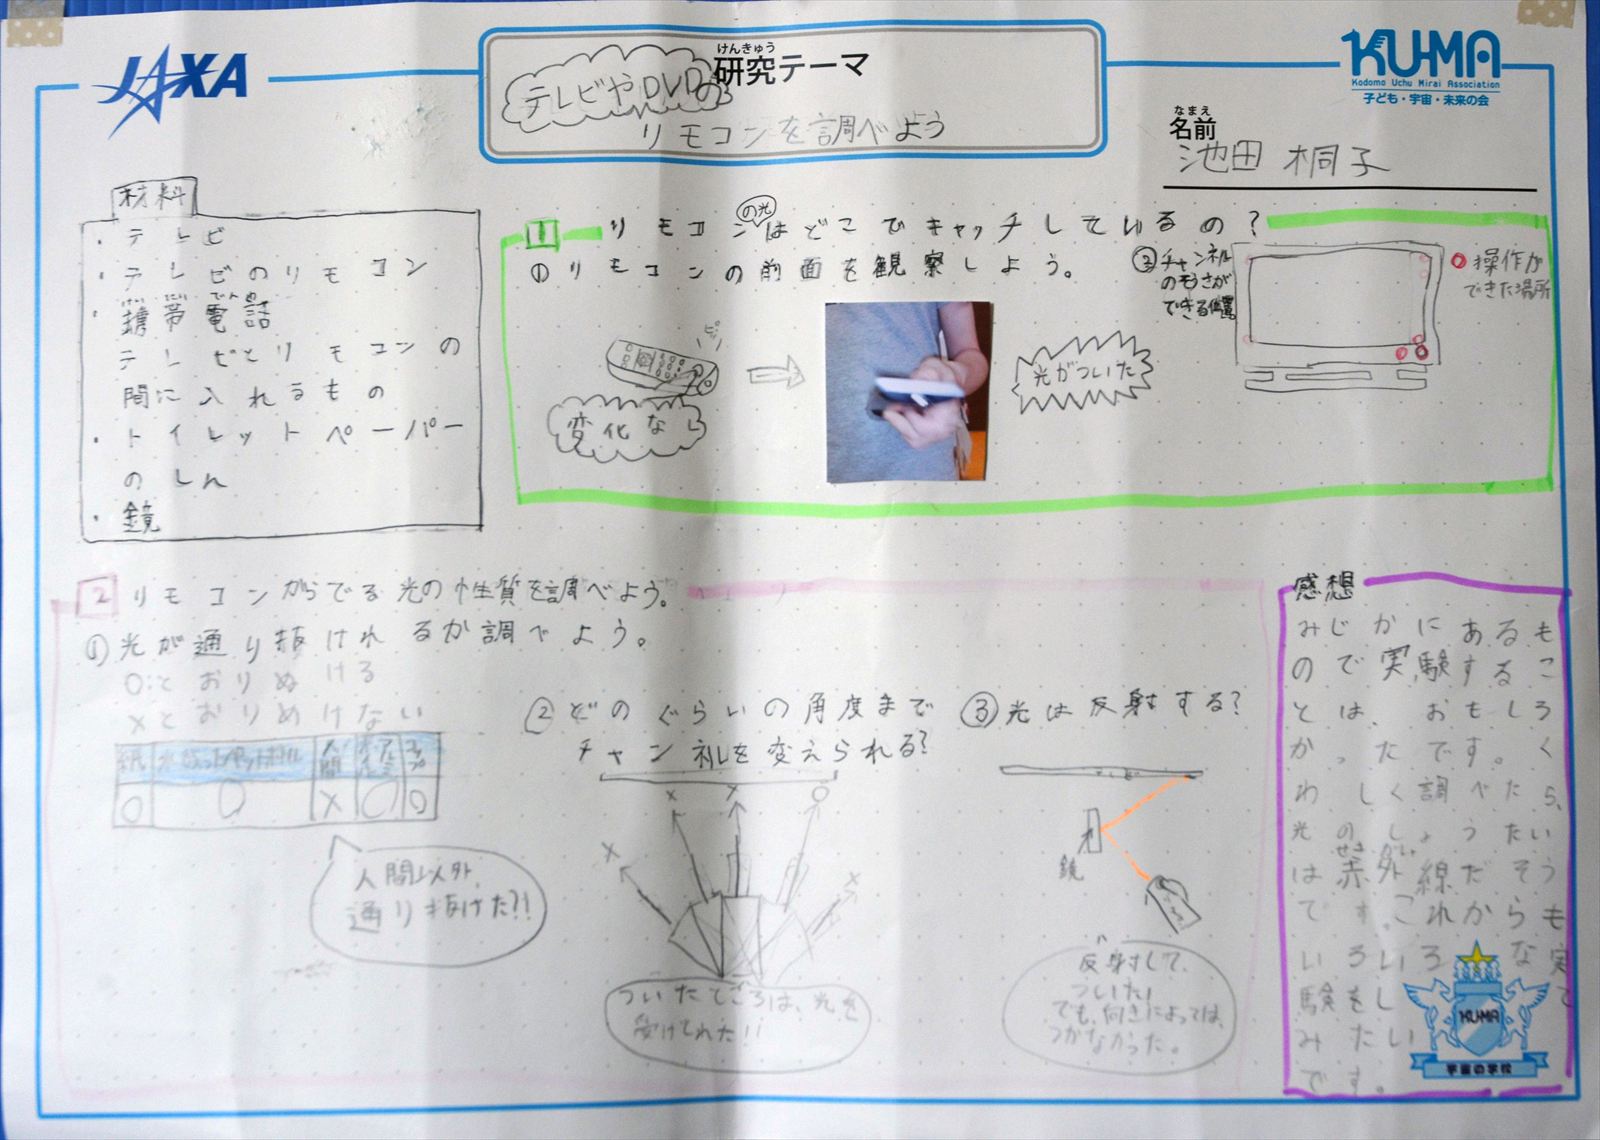 JAXA
けんきゅう
研究テーマ
テレビやDVDの
リモコンを調べよう
KU-MA
Kodomo Uchu Mirai Association
子ども・宇宙・未来の会
なまえ
名前
池田 桐子
材料
・テレビ
・テレビのリモコン
けいたいでんわ
・携帯電話
テレビとリモコンの
間に入れるもの
・トイレットペーパー
のしん
・鏡
1 リモコンの光はどこでキャッチしているの?
①リモコンの前面を観察しよう。
ピッ
変化なし
光がついた
チャンネル
のそうさが
できる位置。
操作が
できた場所
2 リモコンからでる光の性質を調べよう。
①光が通り抜けれるか調べよう。
○:とおりぬける
×とおりぬけない
紙
人間
コップ
○ ○ × ○ ○
人間以外、
通り抜けた?!
②どのぐらいの角度まで
チャンネルを変えられる?
× × × ○ ×
ついたところは、光を
受けてれた!!
③光は反射する?
テレビ
鏡
反射して、
ついた!
でも、向きによっては、
つかなかった。
感想
みじかにあるも
ので実験するこ
とは、おもしろ
かったです。く
わしく調べたら、
光のしょうたい
せきがい
は赤外線だそう
です。これからも
いろいろな実
験をして
みたい
です。
KU-MA
宇宙の学校